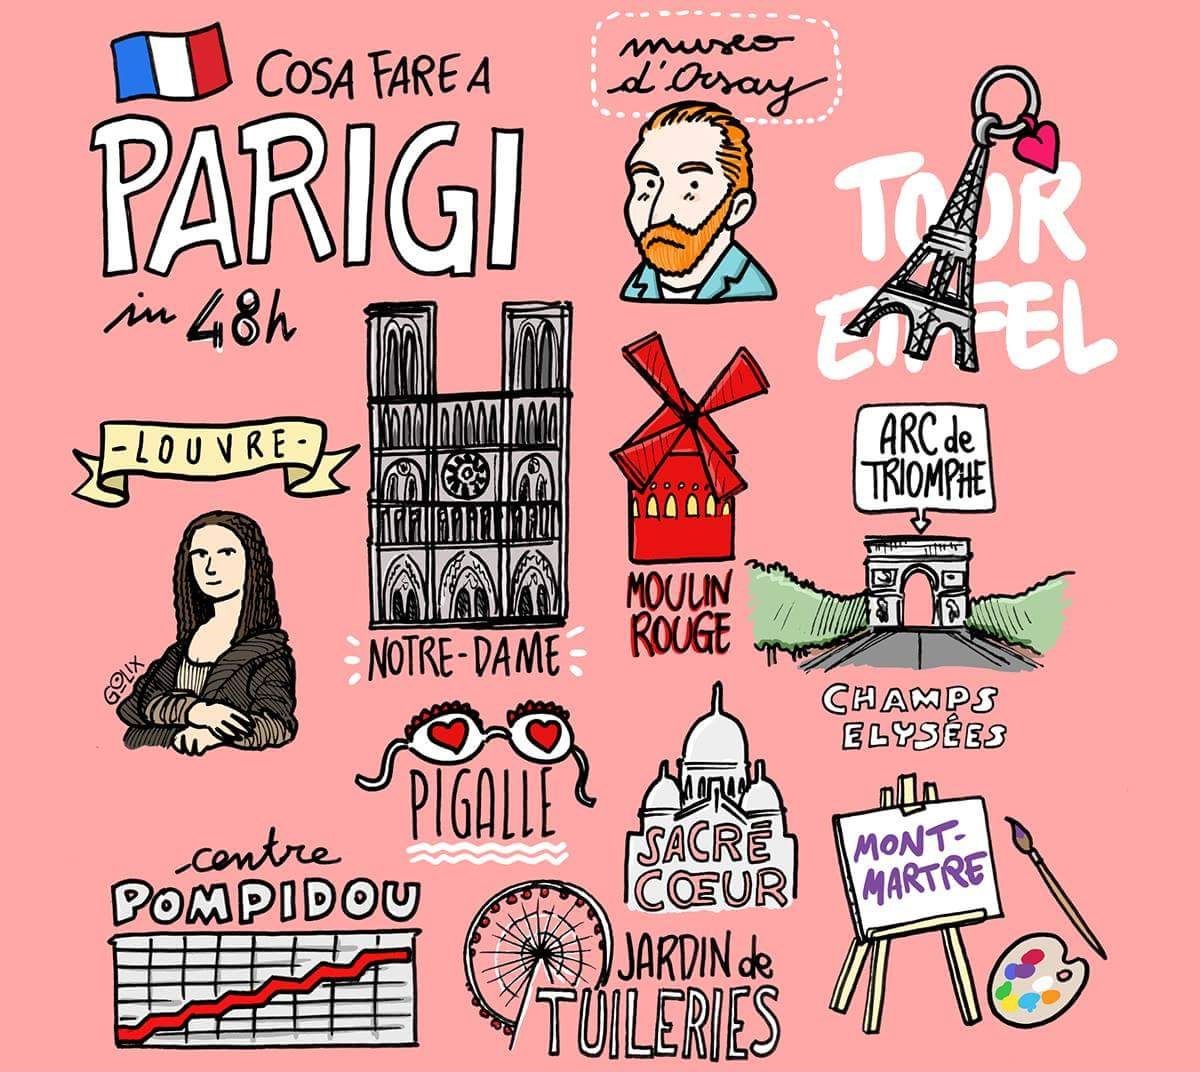 COSA FARE A
PARIGI
in 48h
museo
d'Orsay
TOUR
EIFFEL
-LOUVRE-
GOLIX
NOTRE-DAME
MOULIN
ROUGE
ARC de
TRIOMPHE
CHAMPS
ELYSÉES
PIGALLE
SACRÉ
CŒUR
MONT-
MARTRE
centre
POMPIDOU
JARDIN de
TUILERIES